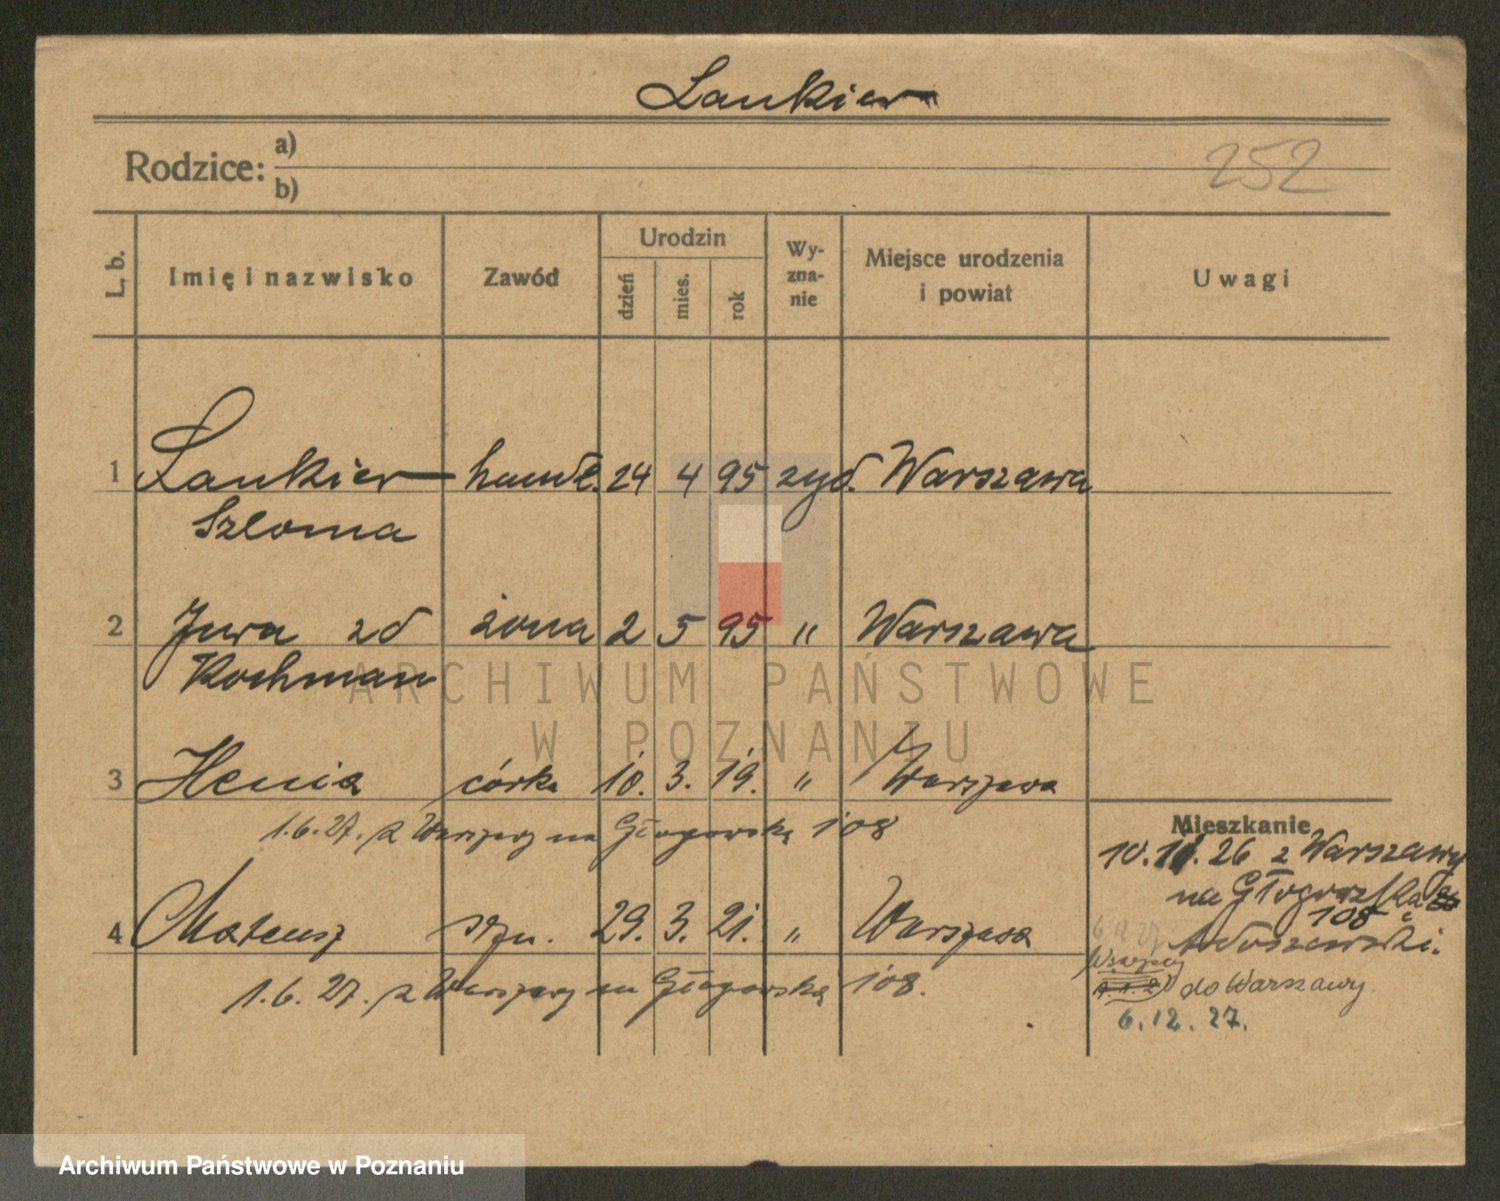 Lankier
Rodzice: a)
b)
252
L. b.
Imię i nazwisko
Zawód
Urodzin
dzień
mies.
rok
Wy-
zna-
nie
Miejsce urodzenia
i powiat
Uwagi
1 Lankier handl. 24 4 95 żyd. Warszawa
Szloma
2 Jwra zd żona 2 5 95 " Warszawa
Rochman
3 Henia córka 10. 3. 19. " Warszawa
1.6.27. z Warszawy na Głogowską 108
4 Mateusz syn. 29. 3. 21. " Warszawa
1.6.27. z Warszawy na Głogowską 108.
Mieszkanie
10.11.26 z Warszawy
na Głogowską
108
6 12 27
Wszyscy
do Warszawy
6.12.27.
ARCHIWUM PAŃSTWOWE
W POZNANIU
Archiwum Państwowe w Poznaniu